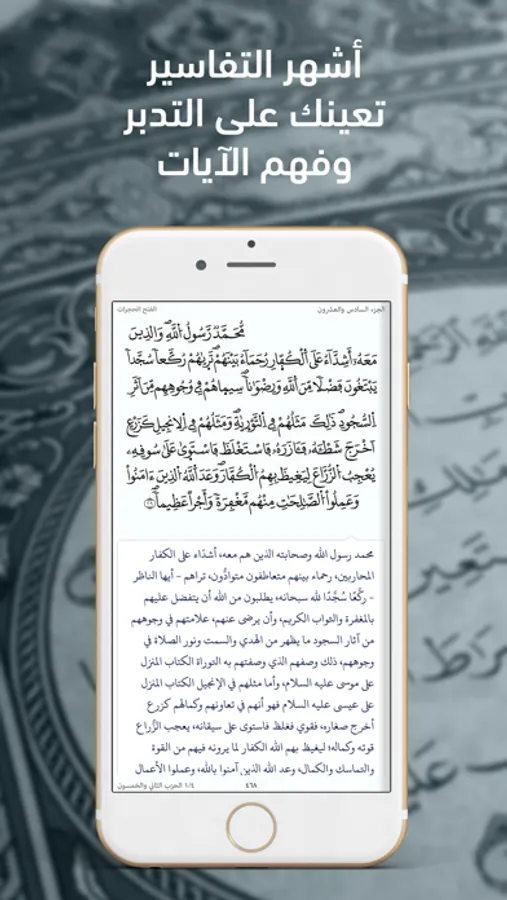 أشهر التفاسير
تعينك على التدبر
وفهم الآيات
الجزء السادس والعشرون
الفتح الحجرات
مُّحَمَّدٌ رَّسُولُ اُ۬للَّهِۖ وَالذِينَ
مَعَهُۥٓ أَشِدَّآءُ عَلَى اَ۬لْكُفّ۪ارِ رُحَمَآءُ بَيْنَهُمْۖ تَر۪يٰهُمْ رُكَّعاٗ سُجَّداٗ
يَبْتَغُونَ فَضْلاٗ مِّنَ اَ۬للَّهِ وَرِضْوَٰناٗۖ سِيمَاهُمْ فِي وُجُوهِهِم مِّنَ اَثَرِ
اِ۬لسُّجُودِۖ ذَٰلِكَ مَثَلُهُمْ فِي اِ۬لتَّوْر۪يٰةِۖ وَمَثَلُهُمْ فِي اِ۬لِانجِيلِ كَزَرْعٍ
اَخْرَجَ شَطْـَٔهُۥ فَـَٔازَرَهُۥ فَاسْتَغْلَظَ فَاسْتَو۪يٰ عَلَىٰ سُوقِهِۦ
يُعْجِبُ اُ۬لزُّرَّاعَ لِيَغِيظَ بِهِمُ اُ۬لْكُفَّارَۖ وَعَدَ اَ۬للَّهُ اُ۬لذِينَ ءَامَنُواْ
وَعَمِلُواْ اُ۬لصَّٰلِحَٰتِ مِنْهُم مَّغْفِرَةٗ وَأَجْراً عَظِيماٗۖ ٢٩
محمد رسول الله وصحابته الذين هم معه، أشدّاء على الكفار
المحاربين، رحماء بينهم متعاطفون متوادُّون، تراهم - أيها الناظر
- ركّعًا سُجَّدًا لله سبحانه، يطلبون من الله أن يتفضل عليهم
بالمغفرة والثواب الكريم، وأن يرضى عنهم، علامتهم في وجوههم
من آثار السجود ما يظهر من الهدي والسمت ونور الصلاة في
وجوههم، ذلك وصفهم الذي وصفتهم به التوراة الكتاب المنزل
على موسى عليه السلام، وأما مثلهم في الإنجيل الكتاب المنزل
على عيسى عليه السلام فهو أنهم في تعاونهم وكمالهم كزرع
أخرج صغاره، فقوي فغلظ فاستوى على سيقانه، يعجب الزُّراع
قوته وكماله؛ ليغيظ بهم الله الكفار لما يرونه فيهم من القوة
والتماسك والكمال، وعد الله الذين آمنوا بالله، وعملوا الأعمال
١/٤ الحزب الثاني والخمسون
٤٦٨